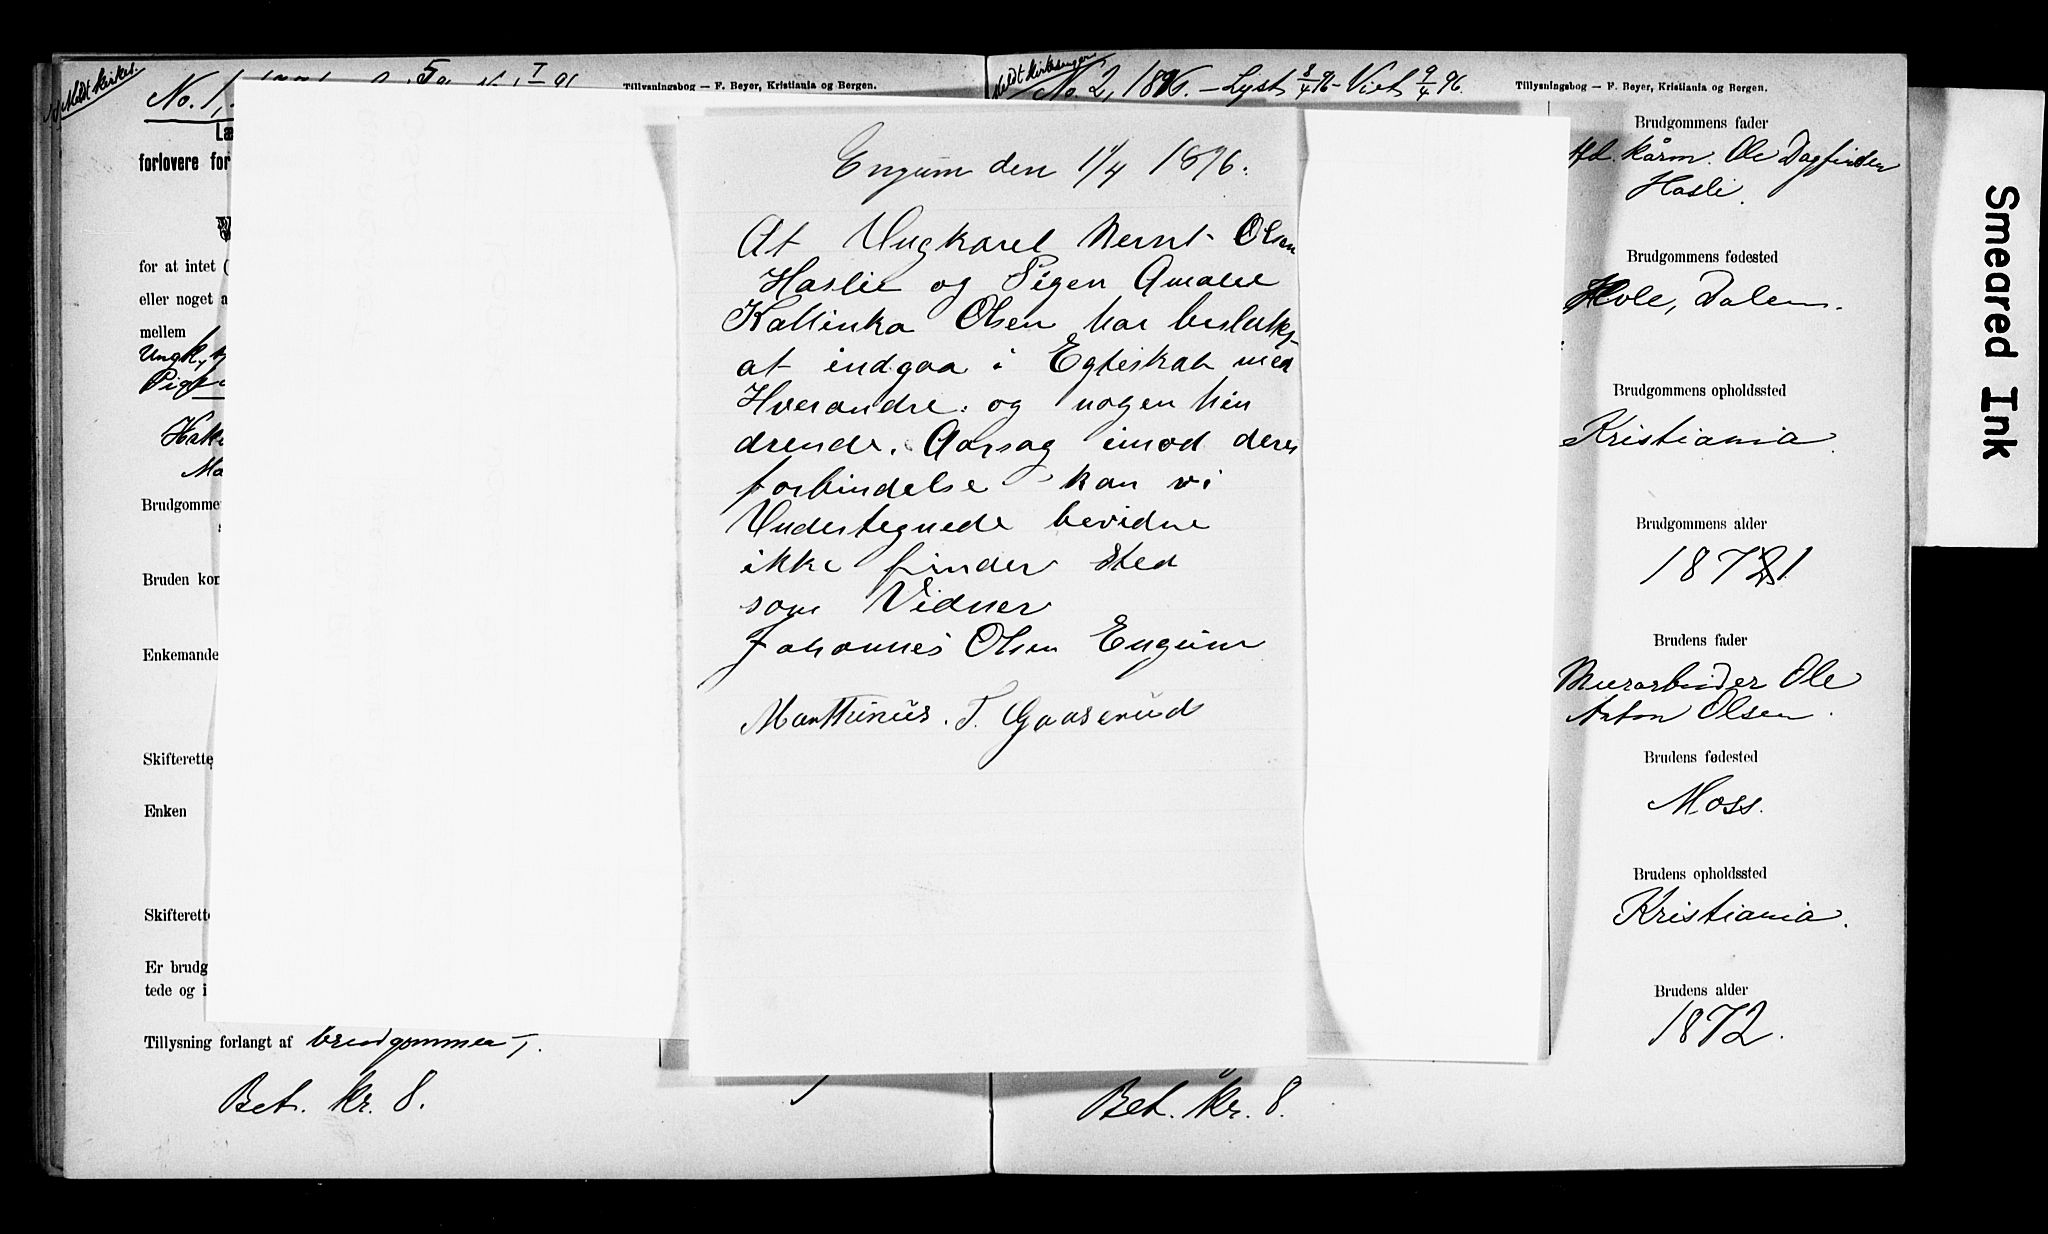 Meldt kirkes.
No. 1,
Tillysningsbog — F. Beyer, Kristiania og Bergen.
forlovere for
for at intet (
eller noget a
mellem
Ungk.,
Pige
Hak
Ma
Brudgomme
Bruden kon
Enkemande
Skifterette
Enken
Skifterett
Er brudg
tede og i
Tillysning forlangt af brudgommen
Bet. kr. 8.
Engum den 1/4 1896.
At Ungkarel Bernt Olsen
Haslie og Pigen Amalie
Kathinka Olsen har beslutte-
at indgaa i Egteskab med
Hverandre. og nogen hin
drende. Aarsag imod deres
forbindelse kan vi
Undertegnede bevidne
ikke finder sted
som Vidner
Johannes Olsen Engum
Marthinius. T. Gaaserud
Meldt kirkesanger
No 2, 1896. – Lyst 8/4 96 – Viet 9/4 96.
Tillysningsbog — F. Beyer, Kristiania og Bergen.
Brudgommens fader
Ole Dagfindsen
Hasli.
Brudgommens fødested
Hole, Dalen.
Brudgommens opholdssted
Kristiania.
Brudgommens alder
1871.
Brudens fader
Murarbeider Ole
Anton Olsen.
Brudens fødested
Moss.
Brudens opholdssted
Kristiania.
Brudens alder
1872.
Bet. kr. 8.
Smeared Ink